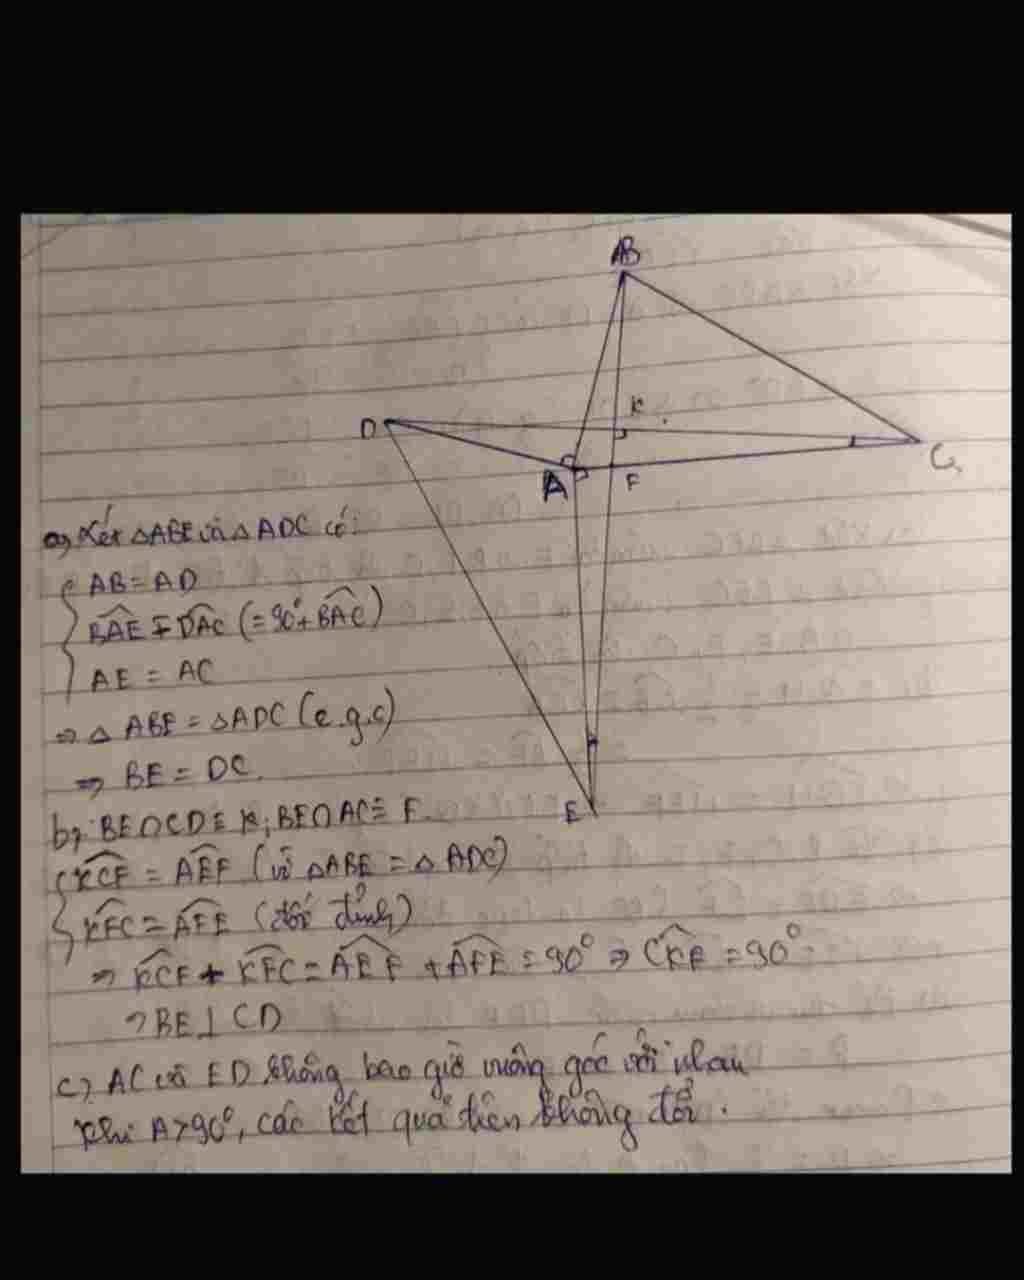 B
D
K
A
F
C
E
a) Xét △ABE và △ADC có:
AB = AD
BAE = DAC (= 90° + BAC)
AE = AC
⇒ △ ABE = △ADC (c.g.c)
⇒ BE = DC.
b) BE∩CD ≡ K; BE∩AC ≡ F.
KCF = AEF (vì △ABE = △ADC)
KFC = AFE (đối đỉnh)
⇒ KCF + KFC = AEF + AFE = 90° ⇒ CKF = 90°.
⇒ BE⊥CD
c) AC và ED không bao giờ vuông góc với nhau
Khi A > 90°, các kết quả trên không đổi.